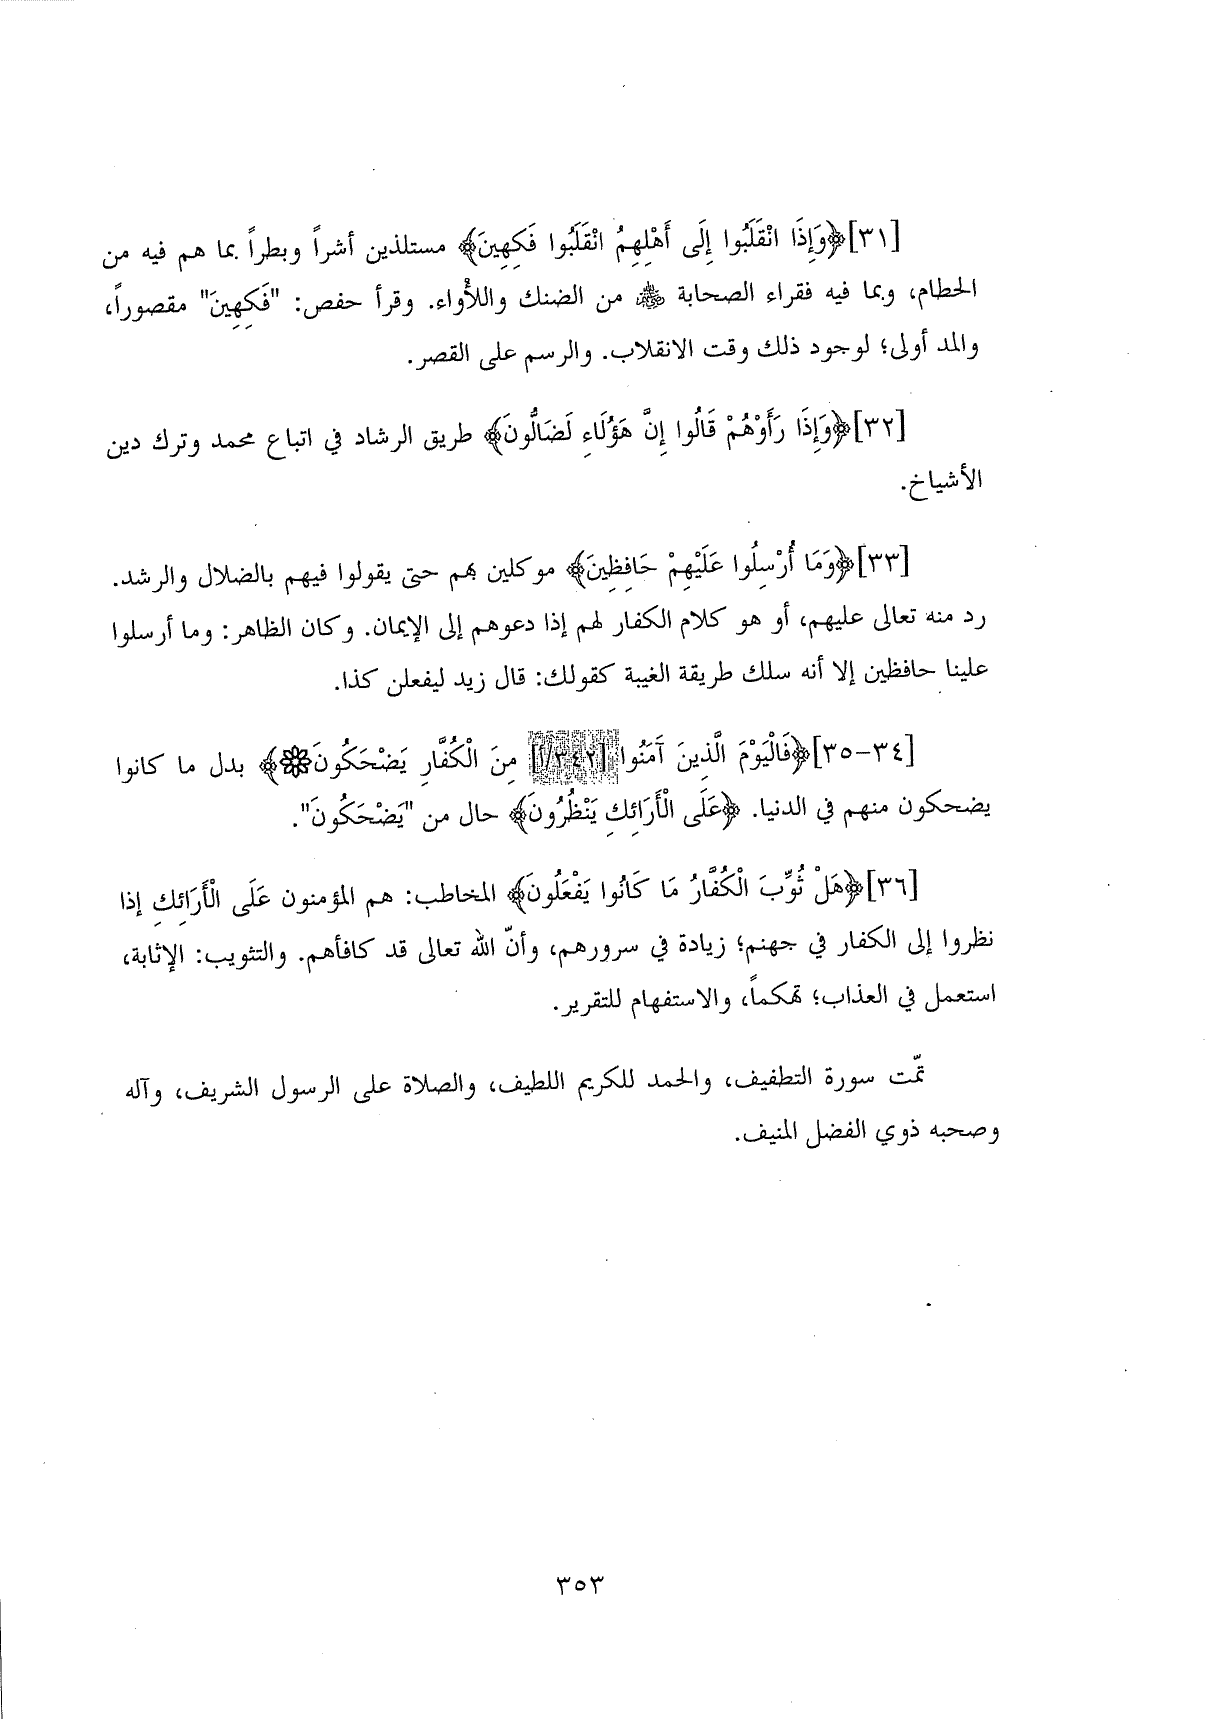 [٣١]﴿وَإِذَا انْقَلَبُوا إِلَى أَهْلِهِمُ انْقَلَبُوا فَكِهِينَ﴾ مستلذين أشراً وبطراً بما هم فيه من
الحطام، وبما فيه فقراء الصحابة من الضنك واللأْواء. وقرأ حفص: "فَكِهِينَ" مقصوراً،
والمد أولى؛ لوجود ذلك وقت الانقلاب. والرسم على القصر.
[٣٢]﴿وَإِذَا رَأَوْهُمْ قَالُوا إِنَّ هَؤُلَاءِ لَضَالُّونَ﴾ طريق الرشاد في اتباع محمد وترك دين
الأشياخ.
[٣٣]﴿وَمَا أُرْسِلُوا عَلَيْهِمْ حَافِظِينَ﴾ موكلين بهم حتى يقولوا فيهم بالضلال والرشد.
رد منه تعالى عليهم، أو هو كلام الكفار لهم إذا دعوهم إلى الإيمان. وكان الظاهر: وما أرسلوا
علينا حافظين إلا أنه سلك طريقة الغيبة كقولك: قال زيد ليفعلن كذا.
[٣٤-٣٥]﴿فَالْيَوْمَ الَّذِينَ آَمَنُوا [٣٤٢/أ] مِنَ الْكُفَّارِ يَضْحَكُونَ﴾ بدل ما كانوا
يضحكون منهم في الدنيا. ﴿عَلَى الْأَرَائِكِ يَنْظُرُونَ﴾ حال من "يَضْحَكُونَ".
[٣٦]﴿هَلْ ثُوِّبَ الْكُفَّارُ مَا كَانُوا يَفْعَلُونَ﴾ المخاطب: هم المؤمنون عَلَى الْأَرَائِكِ إذا
نظروا إلى الكفار في جهنم؛ زيادة في سرورهم، وأنّ الله تعالى قد كافأهم. والتثويب: الإثابة،
استعمل في العذاب؛ تهكماً، والاستفهام للتقرير.
تمّت سورة التطفيف، والحمد للكريم اللطيف، والصلاة على الرسول الشريف، وآله
وصحبه ذوي الفضل المنيف.
٣٥٣